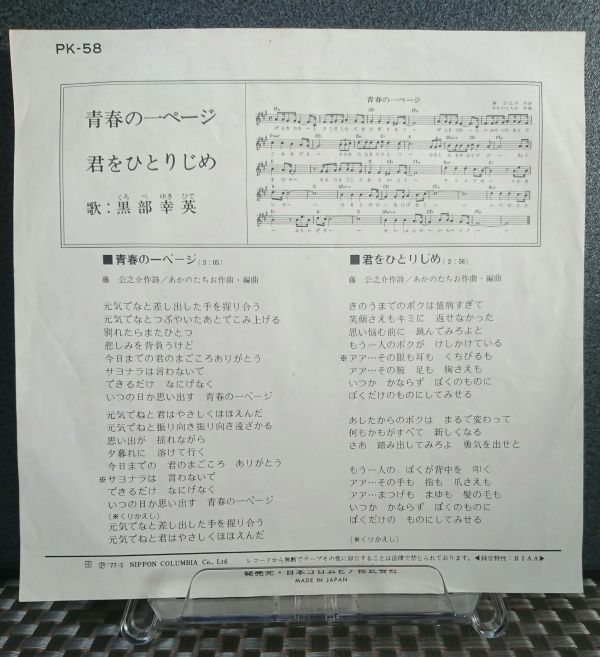 PK-58
青春の一ページ
君をひとりじめ
歌:黒部幸英
くろ べ ゆき ひで
青春の一ページ
■青春の一ページ(3:05)
藤 公之介作詩/あかのたちお作曲・編曲
元気でなと差し出した手を握り合う
元気でなとつぶやいたあとでこみ上げる
別れたらまたひとつ
悲しみを背負うけど
今日までの君のまごころありがとう
サヨナラは言わないで
できるだけ なにげなく
いつの日か思い出す 青春の一ページ
元気でねと君はやさしくほほえんだ
元気でねと振り向き振り向き遠ざかる
思い出が 揺れながら
夕暮れに 溶けて行く
今日までの 君のまごころ ありがとう
※サヨナラは 言わないで
できるだけ なにげなく
いつの日か思い出す 青春の一ページ
(※くりかえし)
元気でなと差し出した手を握り合う
元気でねと君はやさしくほほえんだ
■君をひとりじめ(2:56)
藤 公之介作詩/あかのたちお作曲・編曲
きのうまでのボクは憶病すぎて
笑顔さえもキミに 返せなかった
思い悩む前に 跳んでみろよと
もう一人のボクが けしかけている
※アア…その眼も耳も くちびるも
アア…その腕 足も 胸さえも
いつか かならず ぼくのものに
ぼくだけのものにしてみせる
あしたからのボクは まるで変わって
何もかもがすべて 新しくなる
さあ 踏み出してみろよ 勇気を出せと
もう一人の ぼくが背中を 叩く
アア…その手も 指も 爪さえも
アア…まつげも まゆも 髪の毛も
いつか かならず ぼくのものに
ぼくだけの ものにしてみせる
(※くりかえし)
Ⓟ'77·5 NIPPON COLUMBIA Co., Ltd.
レコードから無断でテープその他に録音することは法律で禁じられております。◀録音特性:RIAA▶
発売元・日本コロムビア株式会社
MADE IN JAPAN